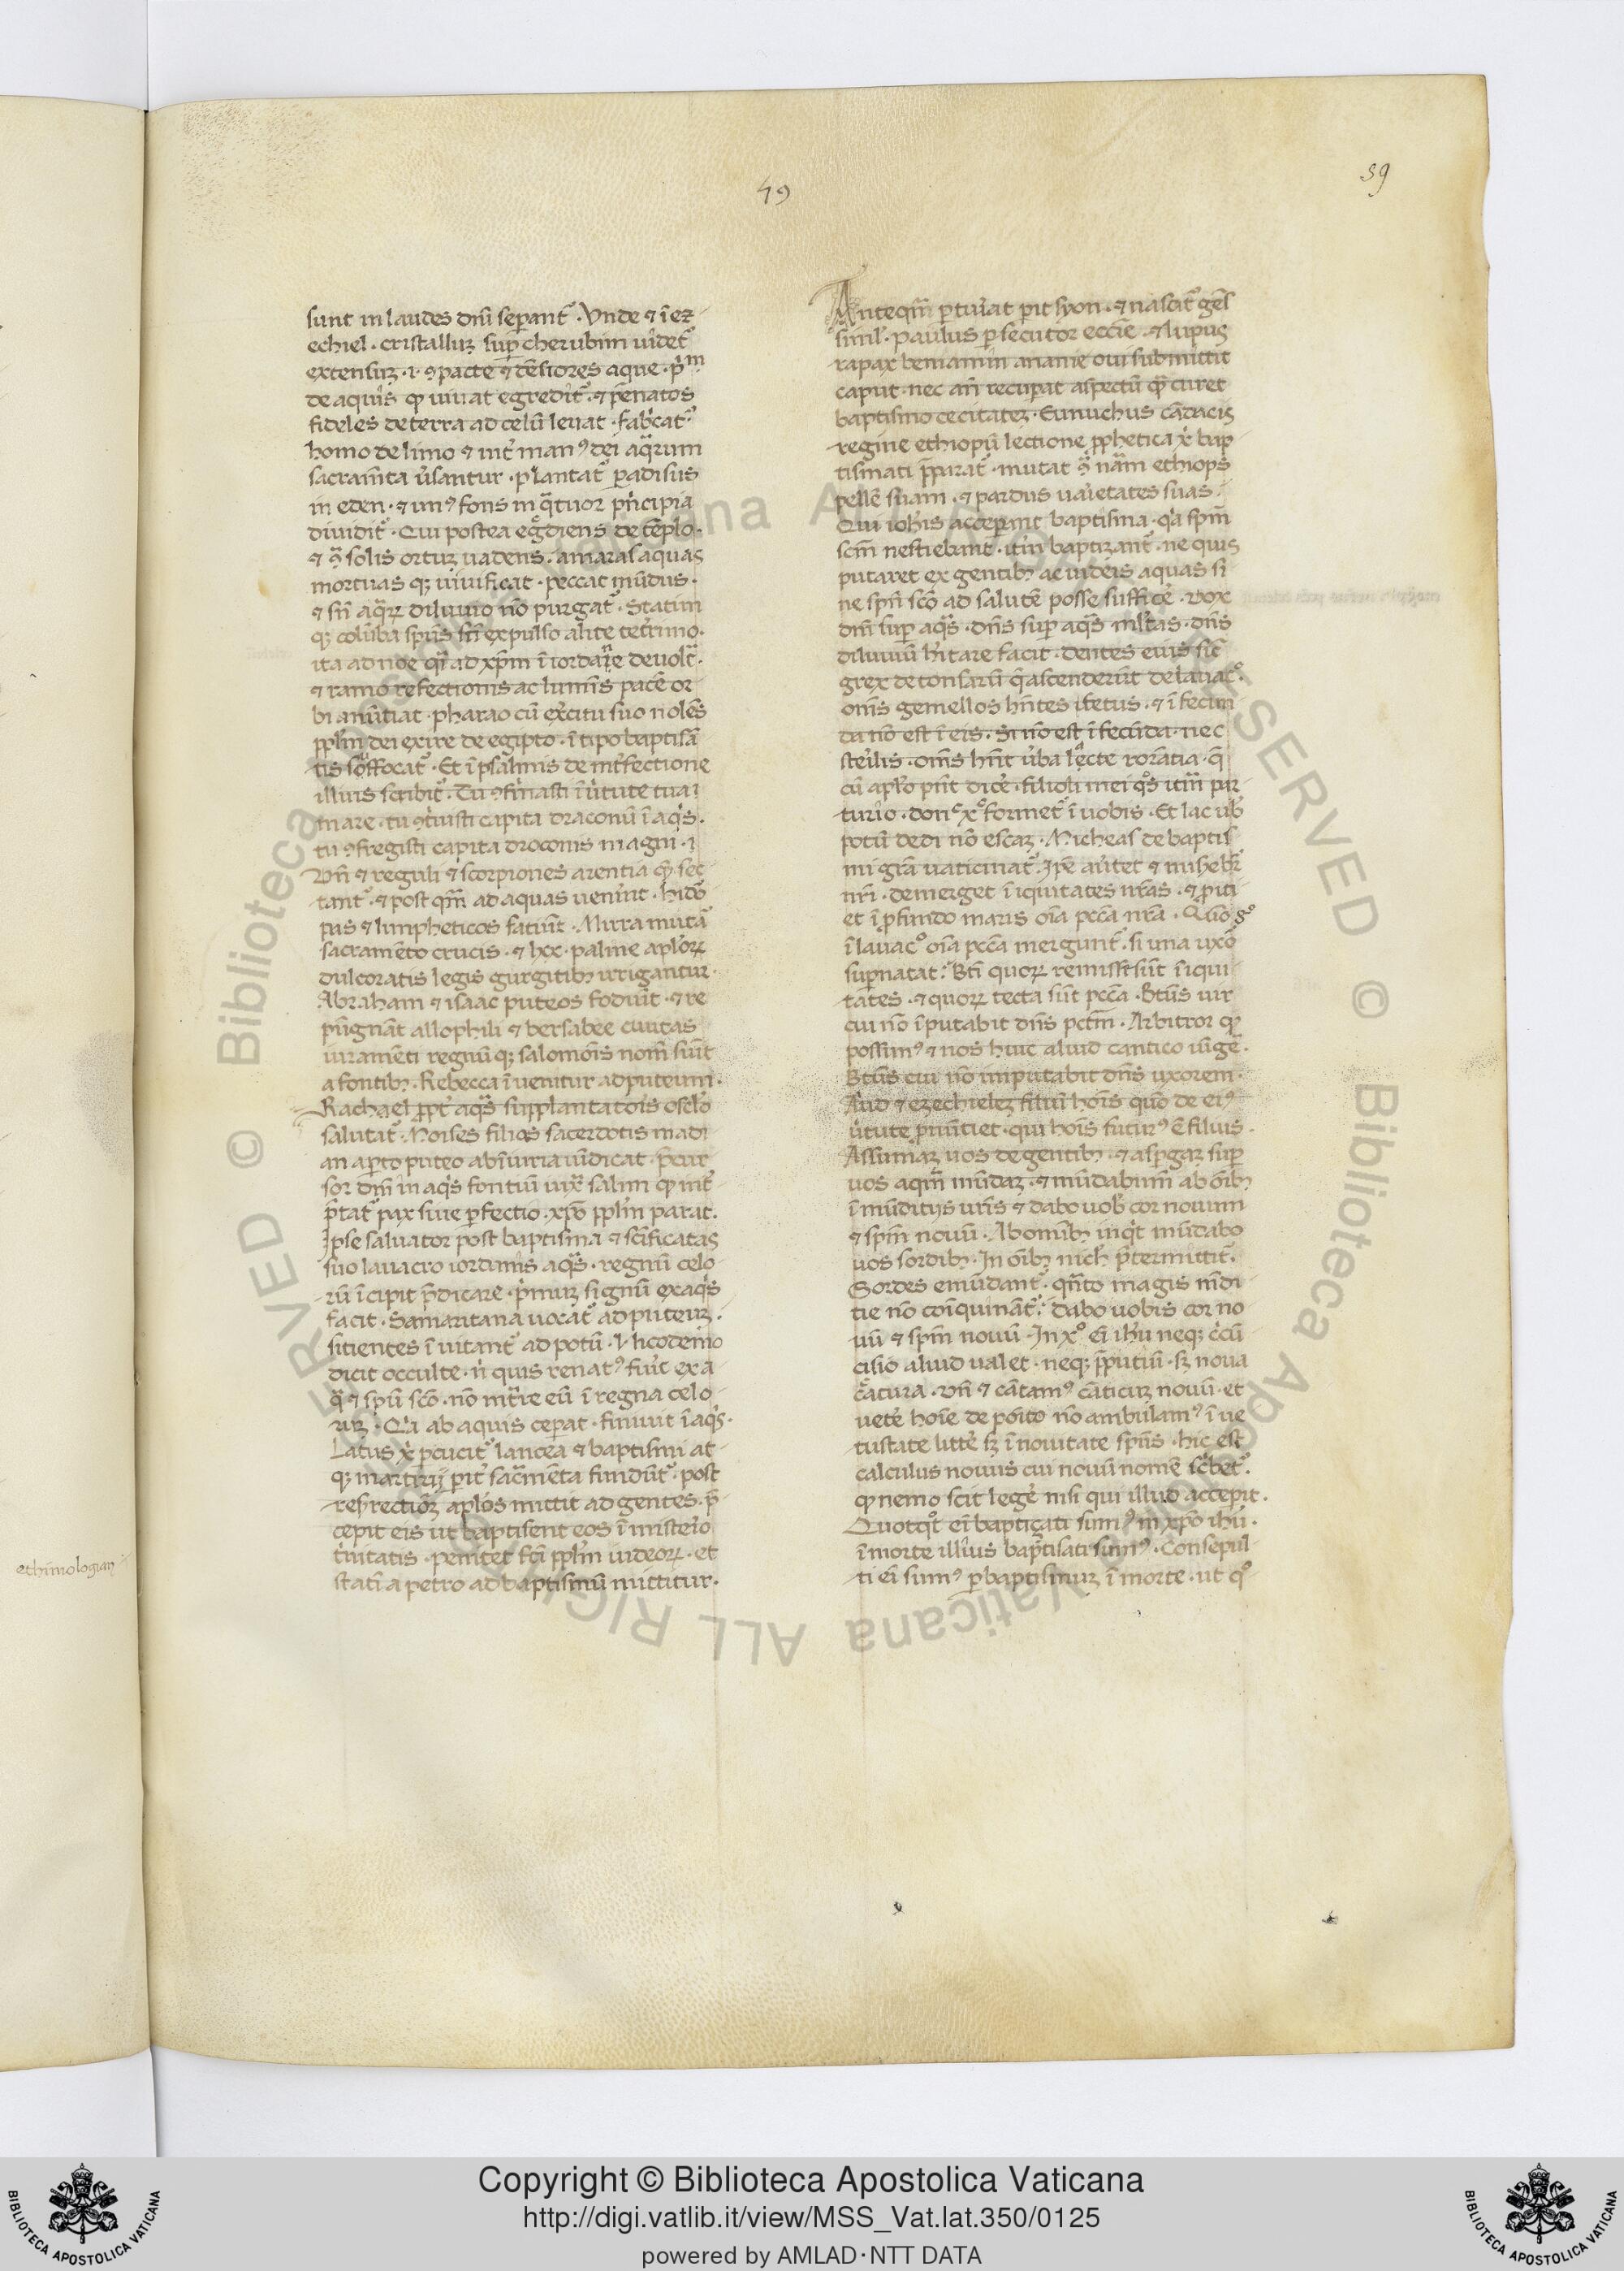 49
59
sunt in laudes dn̄i sep̱ant᷒. Vnde ⁊ ī ez
echiel. cristalluꝫ sup̱ cherubim uidet᷒
extensuꝫ .i. ꝯpacte ⁊ dēsiores aque. p̱ᵐ
de aquis qđ uiuat egredit᷒. ⁊ pēnatos
fideles de terra ad celū leuat. fabͥcat᷒
homo de limo ⁊ int᷒ manꝰ dei aqᷓrum
sacram̄ta u᷒santur. plantat᷒ ꝑadisus
in eden. ⁊ unꝰ fons in qᷓtuor pͥncipia
diuidit᷒. Qui postea egͬdiens de tēplo.
⁊ ꝯͣ solis ortuꝫ uadens. amaras aquas
mortuas qꝫ uiuificat. peccat mūdus.
⁊ sn̄ aqᷓꝝ diluuio nō purgat᷒. Statim
qꝫ colūba sp̄us sc̄i expulso alite tet᷒rimo.
ita ad noe qᷓi ad xp̄m ī iordane deuolat᷒.
⁊ ramo refectionis ac luminis pacē or
bi anūtiat. pharao cū ex᷒citu suo nolēs
pp̄lm dei exire de egipto. ī tipo baptisā
tis soffocat᷒. Et ī psalmis de int᷒fectione
illius scribit᷒. Tu ꝯfirmasti ī u᷒tute tua
mare. tu ꝯtͥuisti capita draconū ī aqͥs.
tu ꝯfregisti capita droconis magni.
Vn̄ ⁊ reguli ⁊ scorpiones arentia q̄ꝫ sec
tant᷒. ⁊ post qᷓm ad aquas uenͥnt. hidͦ
pas ⁊ limpheticos fatiūt. Mirra mutā
sacramēto crucis. ⁊ lxx. palme apl̄oꝝ
dulcoratis legis gurgitibꝫ irrigantur.
Abraham ⁊ isaac puteos fodiūt. ⁊ re
pugnāt allophili ⁊ bersabee ciuitas
iuramēti regnū qꝫ salomōis nom̄ sūit
a fontibꝫ. Rebecca īuenitur ad puteum.
Rachael ꝓpt᷒ aqᷓs supplantatoris osclo
salutat᷒. Moises filias sacerdotis madi
an aꝑto puteo ab īuria uīdicat. p̄cur
sor dn̄i in aqͥs fontiū iuxͣ salim qđ int᷒
p̄tat᷒ pax siue ꝑfectio. xp̄o pp̄lm parat.
Ipse saluator post baptisma ⁊ sc̄ificatas
suo lauacro iordanis aqᷓs. regnū celo
rū īcipit p̄dicare. pͥmuꝫ signū ex aqͥs
facit. Samaritana uocat᷒ ad puteuꝫ.
sitientes ī uitant᷒ ad potū. Nicodemo
dicit occulte. nͥ quis renatꝰ fu᷒it ex a
qᷓ ⁊ sp̄u sc̄o. nō intͣre eū ī regna celo
ruꝫ. Qͥa ab aquis cep̱at. finiuit ī aqͥs.
Latus xͥ ꝑcucit᷒ lancea ⁊ baptismi at
qꝫ martirij parit᷒ sacͣmēta fundūt᷒. post
resrectiōeꝫ apl̄os mittit ad gentes. p̄
cepit eis ut baptisent eos ī misterio
tͥnitatis. penitet fc̄i pp̄lm iudeoꝝ. et
statī a petro ad baptismū mittitur.
Anteqᷓm ꝑtuͥat pit syon. ⁊ nascit᷒ gēs
simͥl. Paulus ꝑsecutor ecc̄ie. ⁊ lupus
rapax beniamin ananie oui submittit
caput. nec an̄ recup̱at aspectū qᷓ curet
baptismo cecitateꝫ. Eunuchus cādacis
regine ethiopū lectione ꝓphetica xͥ bap
tismati p̄parat᷒. mutat ꝯͣ nām ethiops
pellē suam. ⁊ pardus uaͥetates suas.
Qui ioh̄is accep̱ant baptisma. qͥa sp̄m
sc̄m nestiebant. it᷒m baptizant᷒. ne quis
putaret ex gentibꝫ ac iudeis aquas si
ne sp̄u sc̄o ad salutē posse suffice᷒. vox
dn̄i sup̱ aqᷓs. dn̄s sup̱ aqᷓs ml̄tas. dn̄s
diluuiū h̄itare facit. dentes eius sic̄
grex detonsarū q̄ ascenderūt de lauacͦ.
om̄s gemellos hn̄tes ifetus. ⁊ ī fecun
da nō est ī eis. Si nō est ī fecūda. nec
ste᷒ilis. om̄s hn̄t ub᷒a lacte rorātia. q̄
cū aplo pn̄t dice᷒. filioli mei qͦs it᷒m par
turio. donͨ xͦ formet᷒ ī uobis. Et lac uob̄
potū dedi nō escaꝫ. Micheas de baptis
mi grā uaticinat᷒. Ipē au᷒tet ⁊ mis᷒ebit᷒
nr̄i. demerget īiquitates nr̄as. ⁊ ꝓiti
et ī ꝓfundo maris oīa pcc̄a nr̄a. Quō gͦ
ī lauacͦ oīa pcc̄a mergunt᷒. si una uxō
sup̱natat. Bt̄i quoꝝ remisse sūt īiqui
tates. ⁊ quoꝝ tecta sūt pcc̄a. Bt̄us uir
cui nō īputabit dn̄s pct̄m. Arbitror qđ
possimꝰ ⁊ nos huic aliud cantico iūge᷒.
Bt̄us cui nō imputabit dn̄s uxorem.
Aud ⁊ ezechieleꝫ filiū hōis quō de eiꝰ
u᷒tute pnūtiet. qui hōis futurꝰ ē filius.
Assumaꝫ uos de gentibꝫ. ⁊ asp̱gaꝫ sup̱
uos aqᷓm mūdaꝫ. ⁊ mūdabimī ab ōibꝫ
īmūditijs ur̄is ⁊ dabo uob̄ cor nouum
⁊ sp̄m nouū. Ab omībꝫ inqͥt mūdabo
uos sordibꝫ. In ōibꝫ nich̄ p̄termittit᷒.
Sordes emūdant᷒. qn̄to magis mūdi
tie nō coinquināt᷒. Dabo uobis cor no
uū ⁊ sp̄m nouū. In xͦ eī ih̄u neqꝫ cͥcū
cisio aliud ualet. neqꝫ p̄putiū. sꝫ noua
cͣatura. Vn̄ ⁊ cātamꝰ cāticuꝫ nouū. et
uete᷒ hoīe de poito nō ambulamꝰ ī ue
tustate litte᷒ sꝫ ī nouitate sp̄us. hic est
calculus nouus cui nouū nomē scͥbet᷒.
qđ nemo scit lege᷒ nisi qui illud accepit.
Quotqͦt eī baptiçati sumꝰ in xp̄o ih̄u.
ī morte illius baptisati sumꝰ. Consepul
ti eī sumꝰ ꝑ baptismuꝫ ī morte. ut qͦ
ethimologian
Copyright © Biblioteca Apostolica Vaticana
http://digi.vatlib.it/view/MSS_Vat.lat.350/0125
powered by AMLAD·NTT DATA